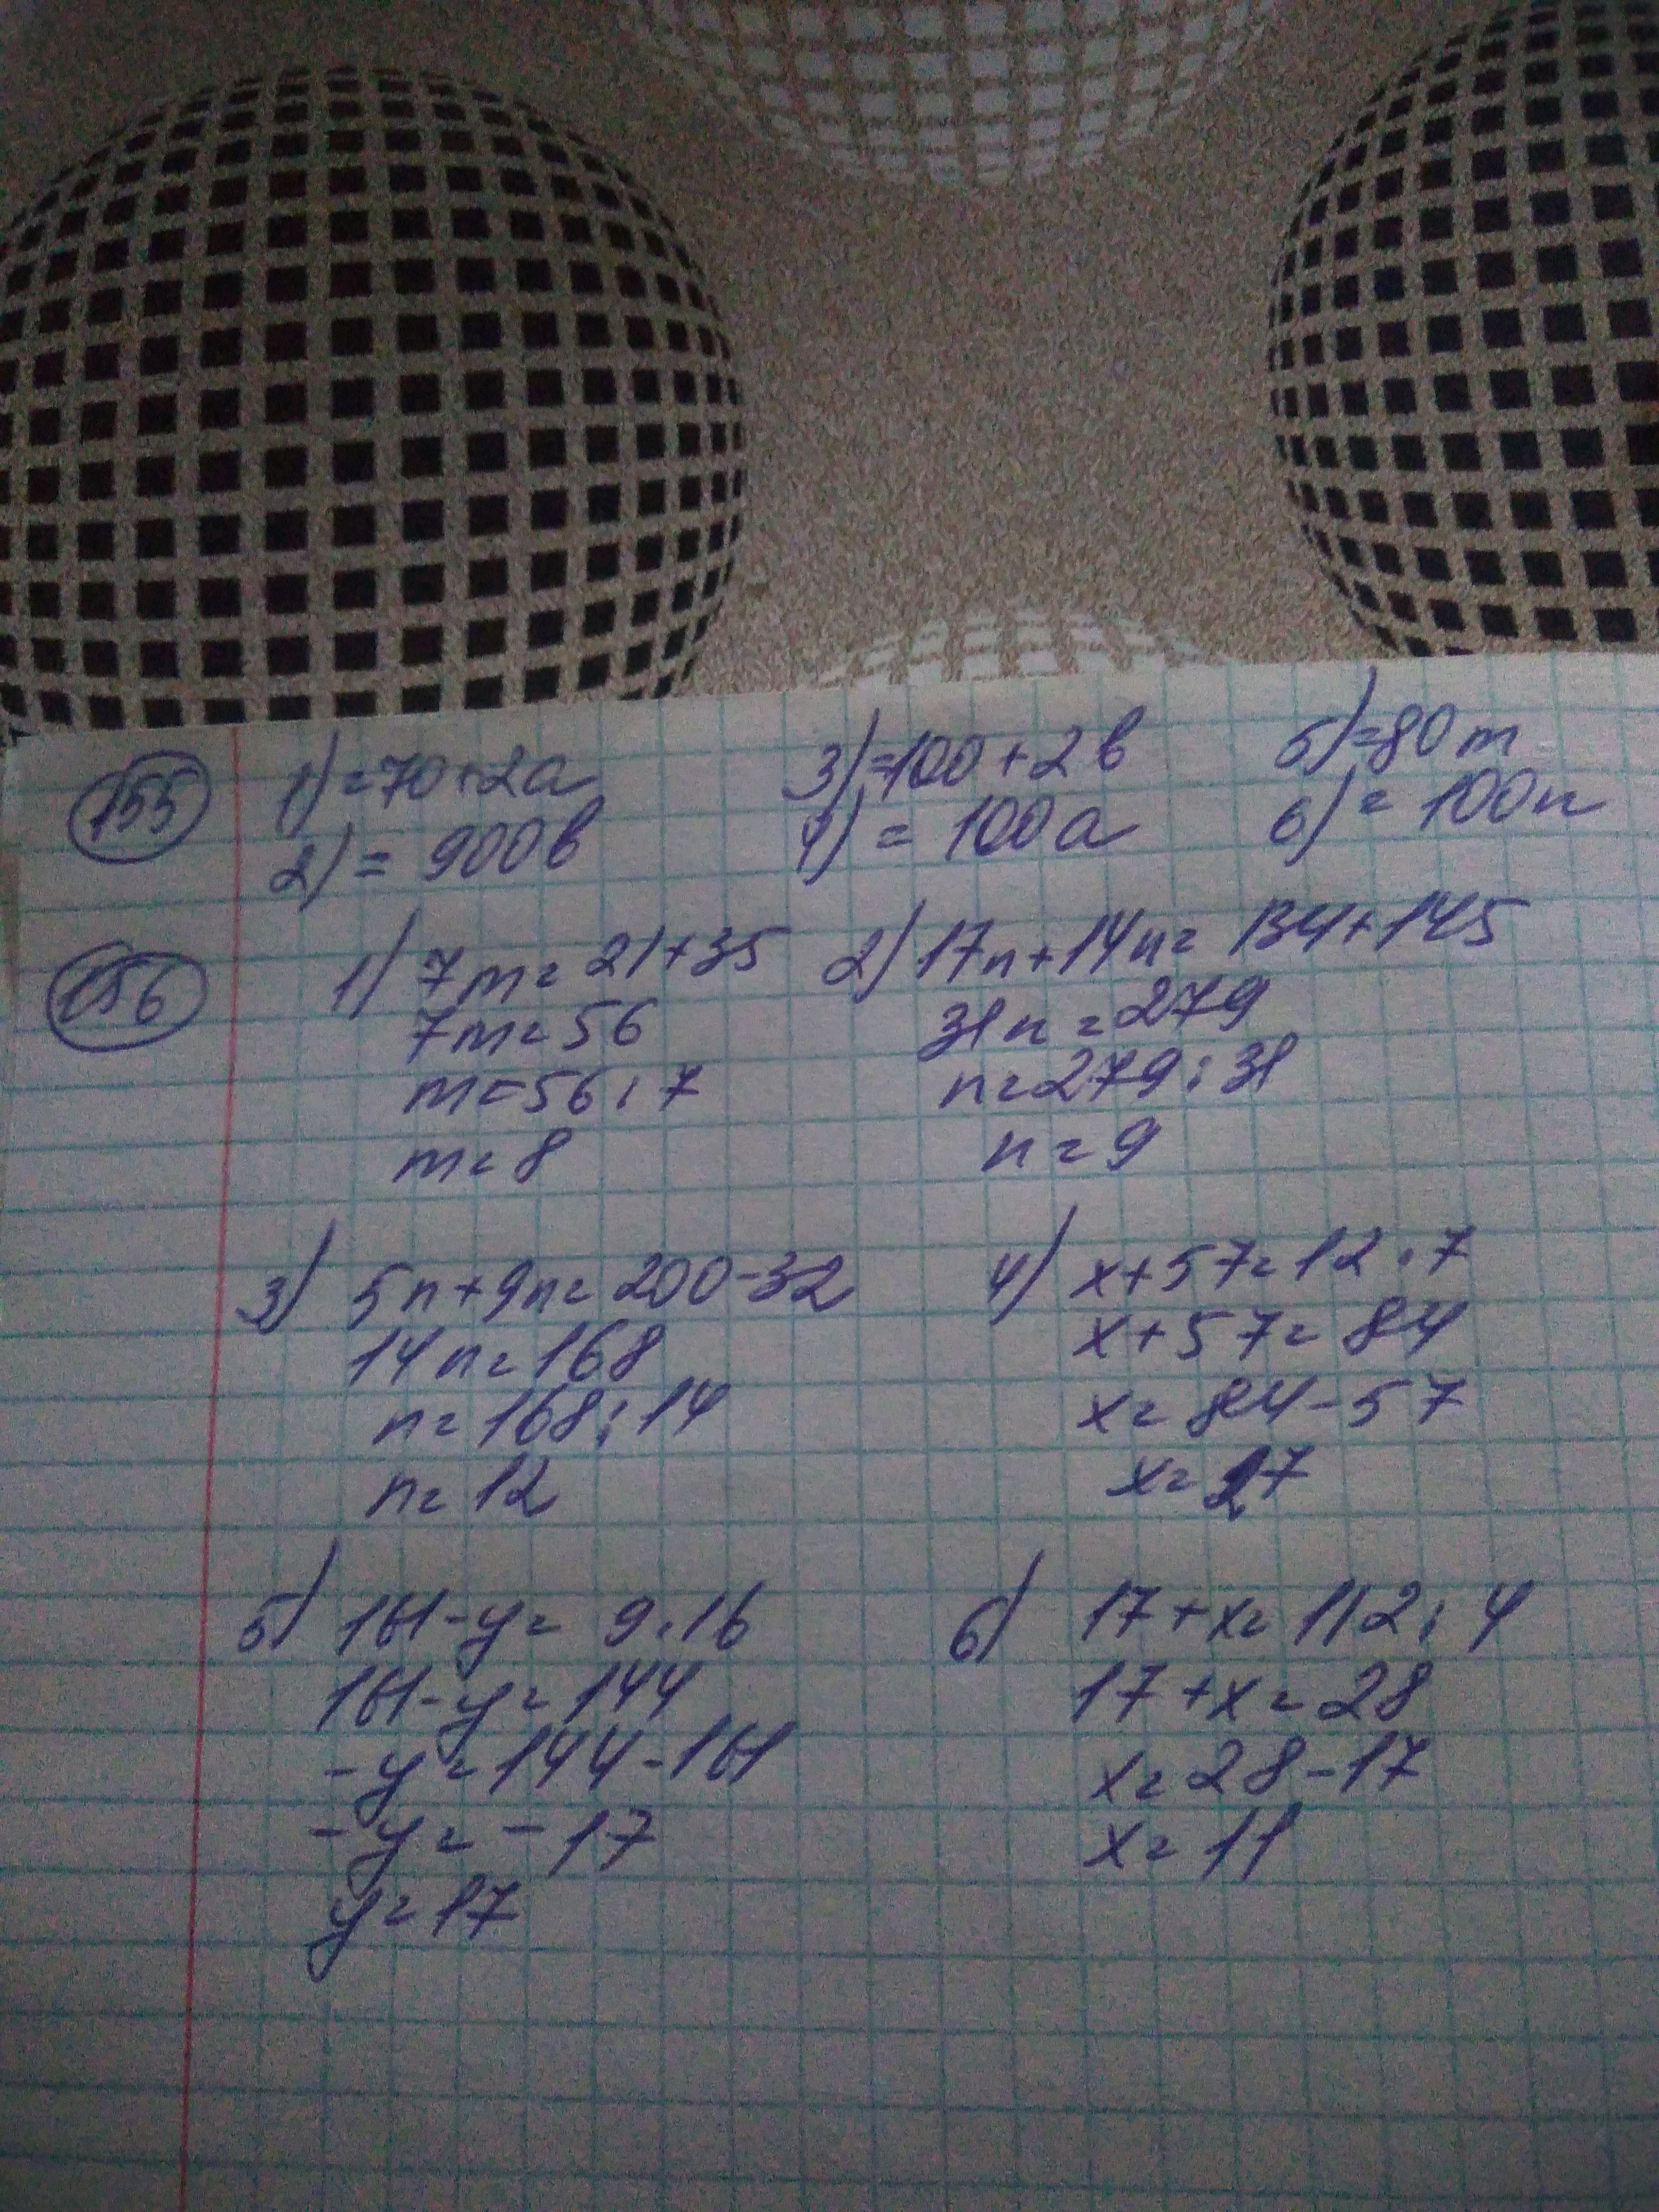 155
1) =70+2a
2) = 900в
3) =100+2в
4) = 100a
5) =80m
6) = 100n
156
1) 7m=21+35
7m=56
m=56:7
m=8
2) 17n+14n=134+145
31n=279
n=279:31
n=9
3) 5n+9n=200-32
14n=168
n=168:14
n=12
4) x+57=12·7
x+57=84
x=84-57
x=27
5) 161-y= 9·16
161-y=144
-y=144-161
-y=-17
y=17
6) 17+x=112:4
17+x=28
x=28-17
x=11